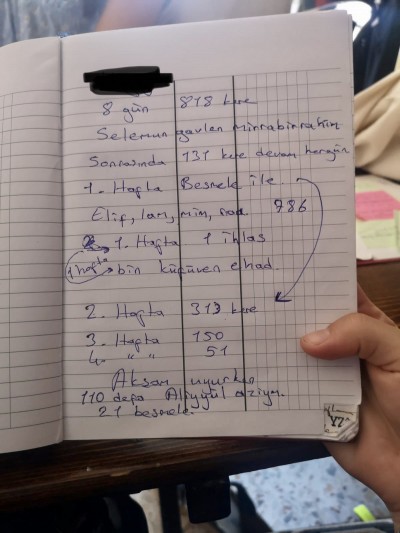 8 gün 818 kere
Selamun gavlen mirrabbirrahim
Sonrasında 131 kere devam hergün
1. Hafta Besmele ile
Elif, lam, mim, sad 786
1. Hafta 1 ihlas
1 hafta bin küfüven ehad.
2. Hafta 313 kere
3. Hafta 150
4. " " 51
Akşam uyurken
110 defa Aliyyül aziym.
21 besmele.